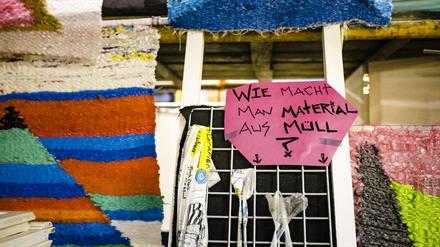 WIE MACHT
MAN MATERIAL
AUS MÜLL
?